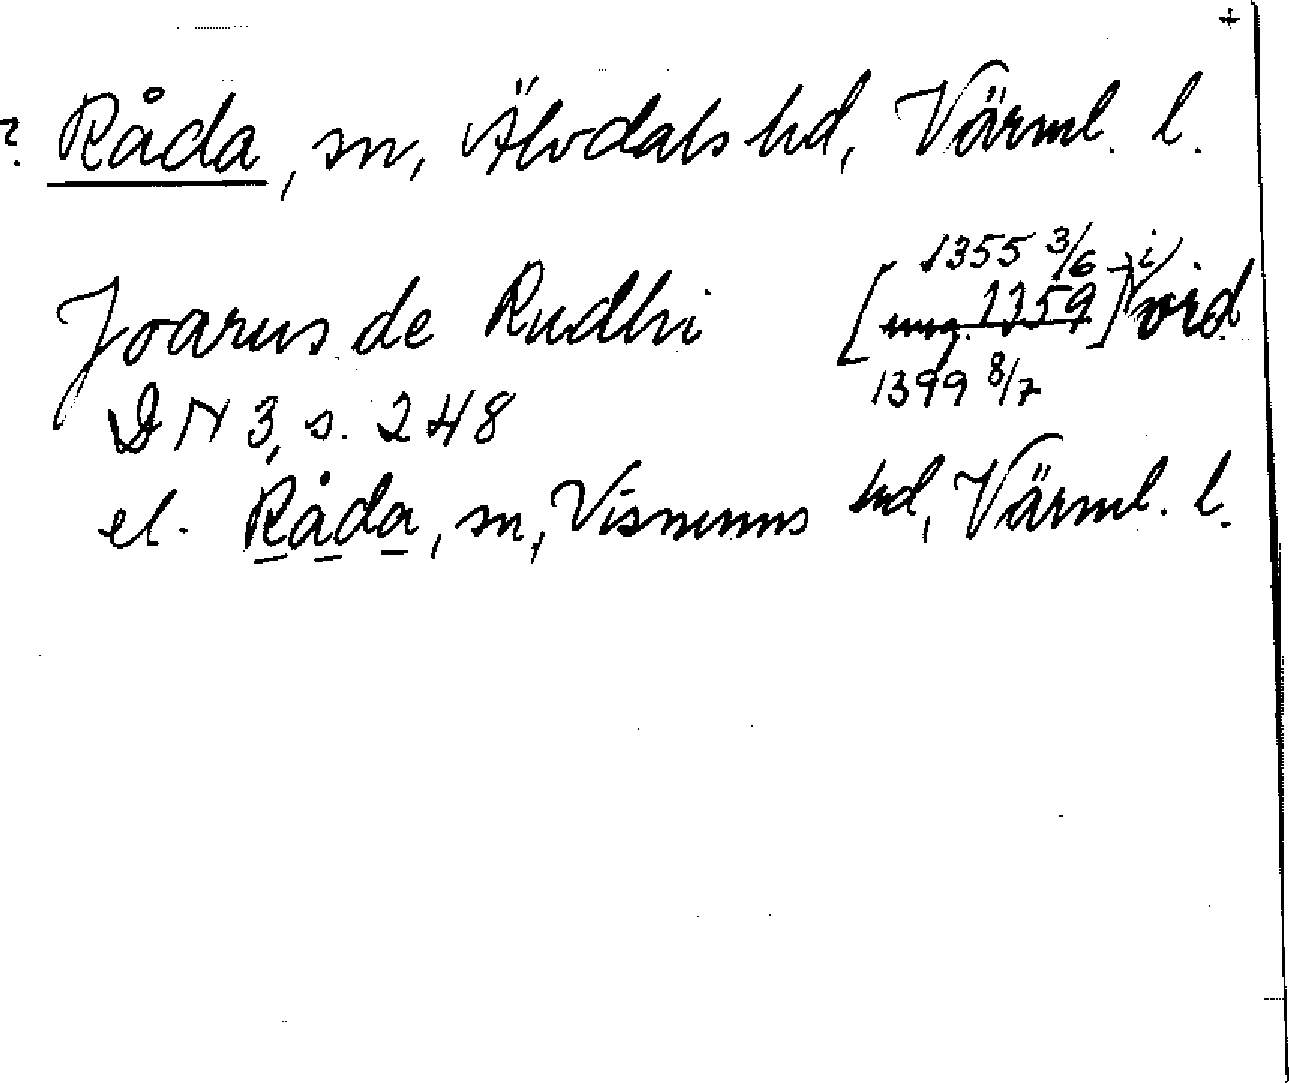 +
? Råda, sn, Älvdals hd, Värml. l.
1355 3/6 i
Joarus de Rudhi [ung. 1359] vid.
1399 8/7
DN 3, s. 248
el. Råda, sn, Visnums hd, Värml. l.